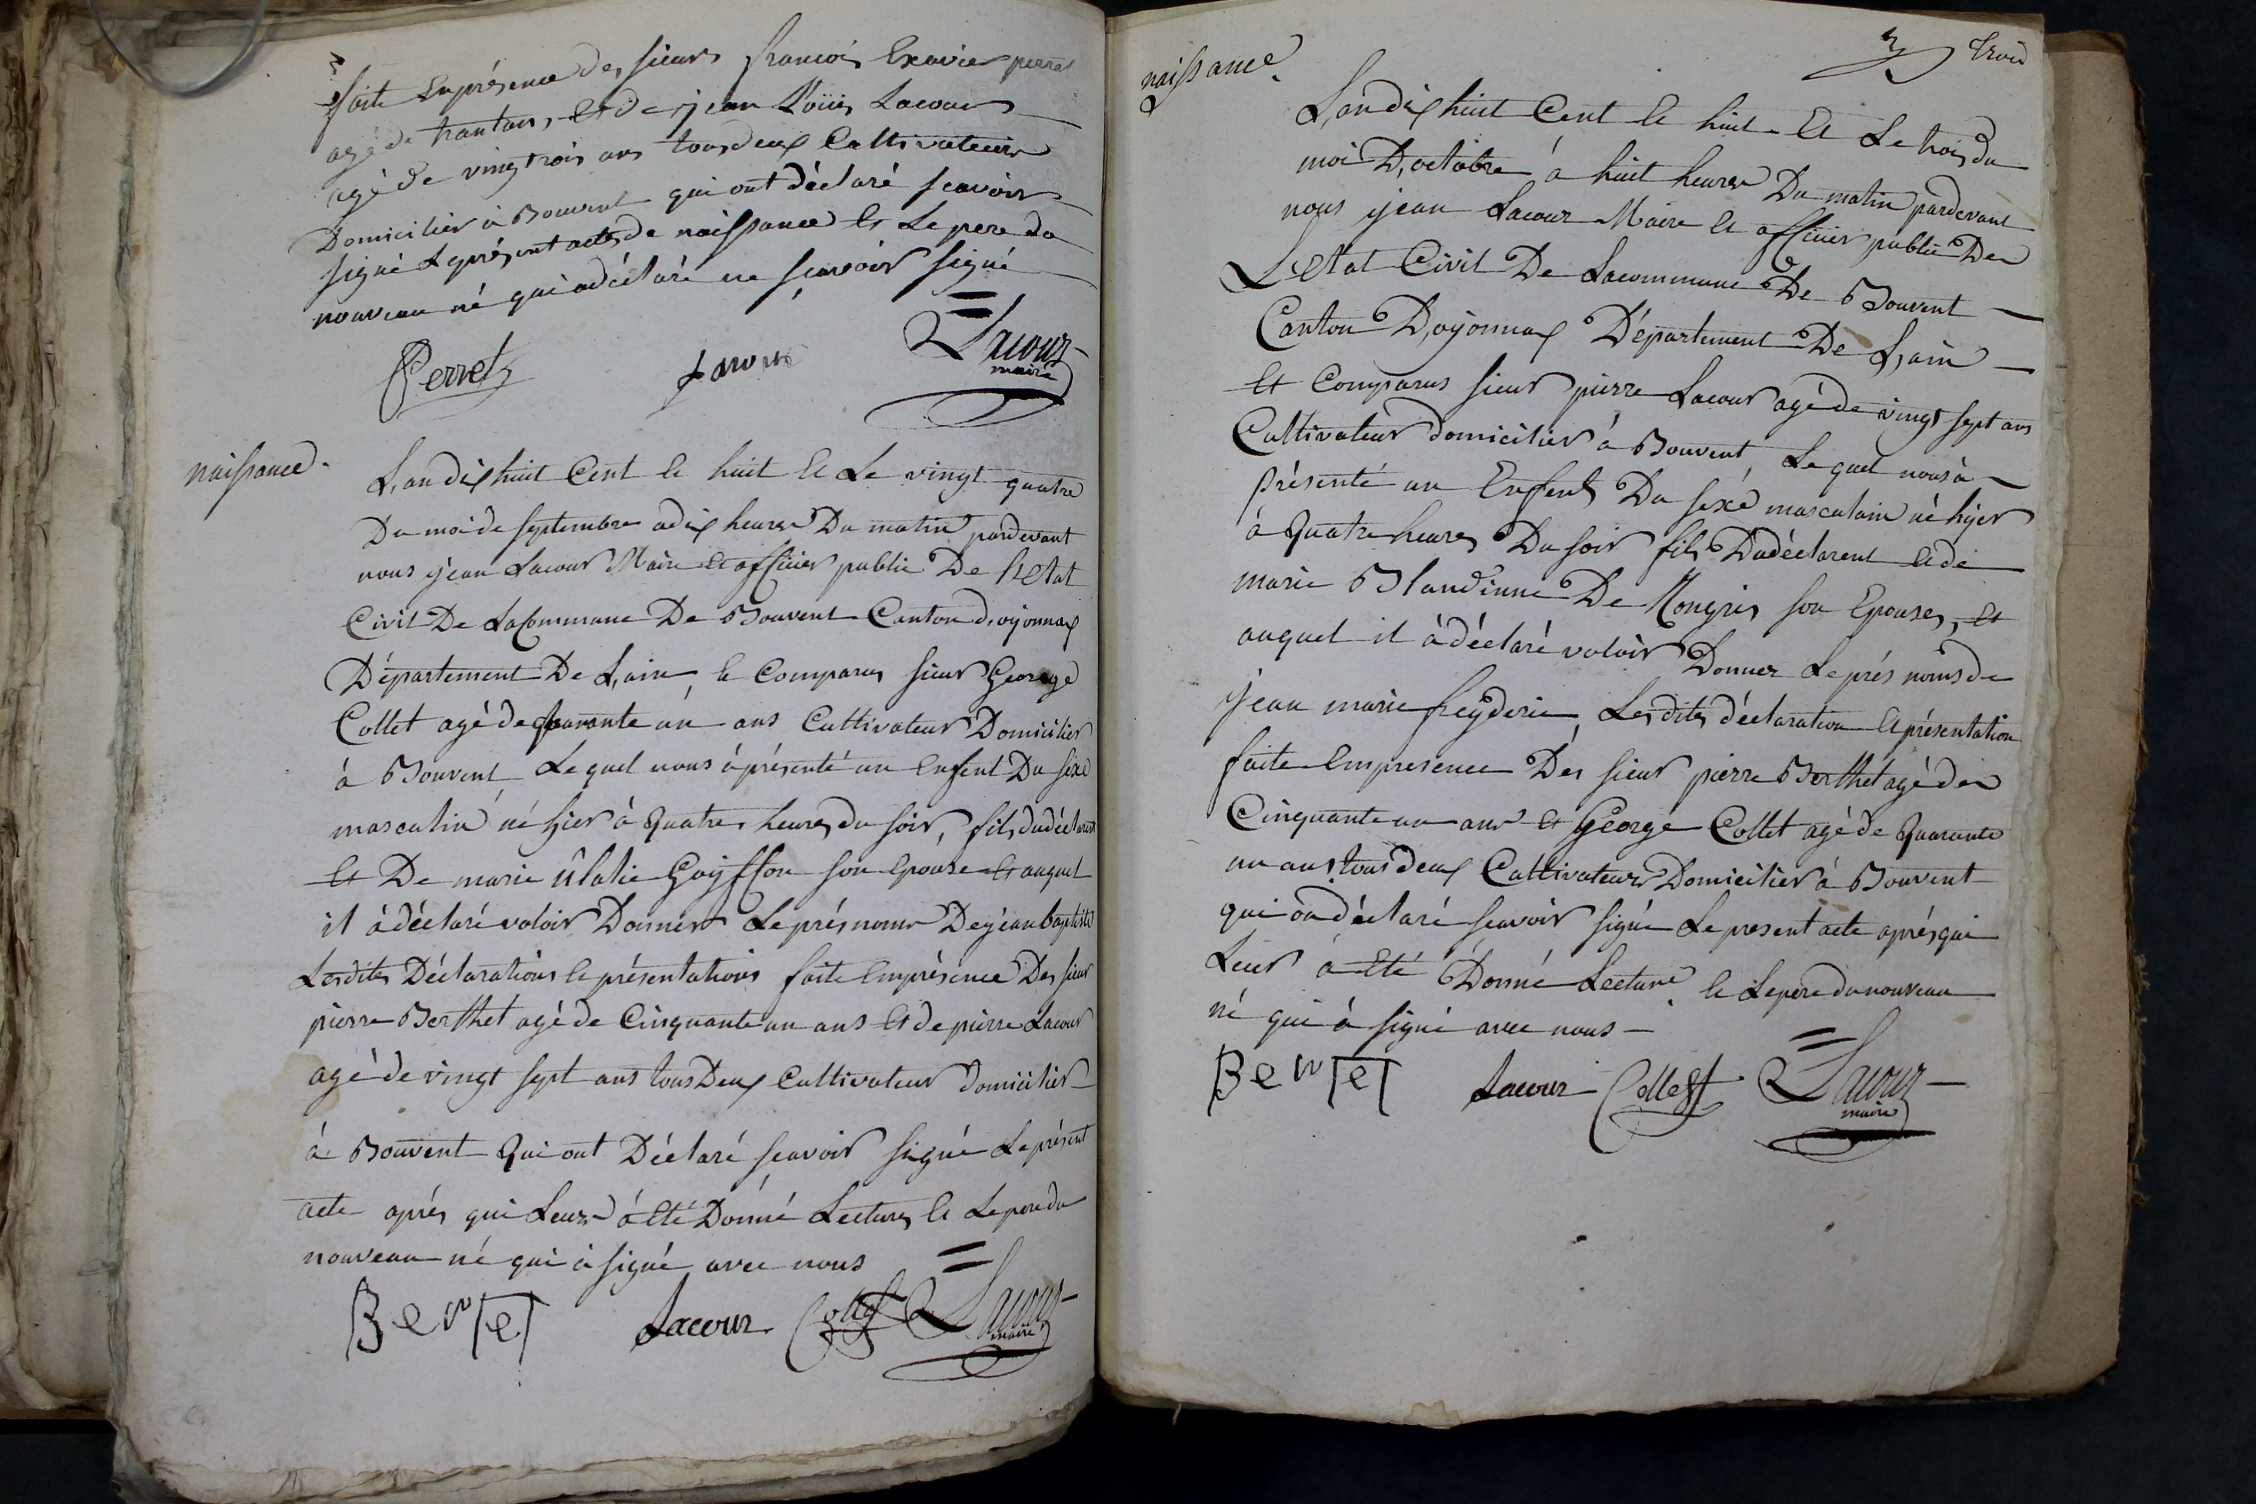 faite en présence des sieurs francois Exavier perret
agé de trantans, et de jean Loüis Lacour
agé de vingtrois ans tous deux Cultivateur
Domicilier à Bouvent qui ont déclaré scavoir
signé Le présent acte de naissance et Le pere du
nouveau né qui a déclaré ne scavoir signé
Perret Lacour Lacour
maire
naissance.
L'an dix huit Cent le huit et Le vingt quatre
Du moi de septembre a dix heures Du matin pardevant
nous jean Lacour Maire et officier public De L'Etat
Civil De La Commune De Bouvent Canton d'oyonnax
Département De L'ain, et Comparus sieur George
Collet agé de quarante un ans Cultivateur Domicilier
à Bouvent Le quel nous à présenté un Enfent Du sexe
masculin né hier à Quatre heures du soir, fils du déclarant
et De marie ûlalie Goÿffon son Epouse et auquel
il à déclaré voloir Donner Le prés noms De jéan baptiste
Lesdites Déclarations et présentations faite En présence Des sieur
pierre Berthet agé de Cinquante un ans et de pierre Lacour
agé de vingt sept ans tous Deux Cultivateur domicilier
à Bouvent Qui ont Déclaré scavoir signé Le présent
acte aprés qui Leur à Eté Donné Lecture et Le pere du
nouveau né qui à signé avec nous
Bertet Lacour Collet Lacour
maire
3 trois
naissance.
L'an dix huit Cent le huit et Le trois du
moi D'octobre à huit heures Du matin pardevant
nous jean Lacour Maire et officier public De
L'Etat Civil De La commune De Bouvent
Canton D'oyonnax Département De L'ain
et Comparus sieur pierre Lacour agé de vingt sept ans
Cultivateur domicilier à Bouvent Le quel nous à
présenté un Enfent Du sexé masculain né hyer
à Quatre heures Du soir fils Du déclarent et de
marie Blandinne De Mongris son Epouse, et
auquel il à déclaré voloir Donner Le prés noms de
jean marie freÿderic, Lesdites déclaration et présentation
faite En presence Des sieur pierre Berthet agé de
Cinquante un ans et George Collet agé de Quarante
un ans tous deux Cultivateur Domicilier à Bouvent
qui on déclaré scavoir signé Le present acte aprés qui
Leur à Eté Donné Lecture et Le pere du nouveau
né qui à signé avec nous
Bertet Lacour Collet Lacour
maire